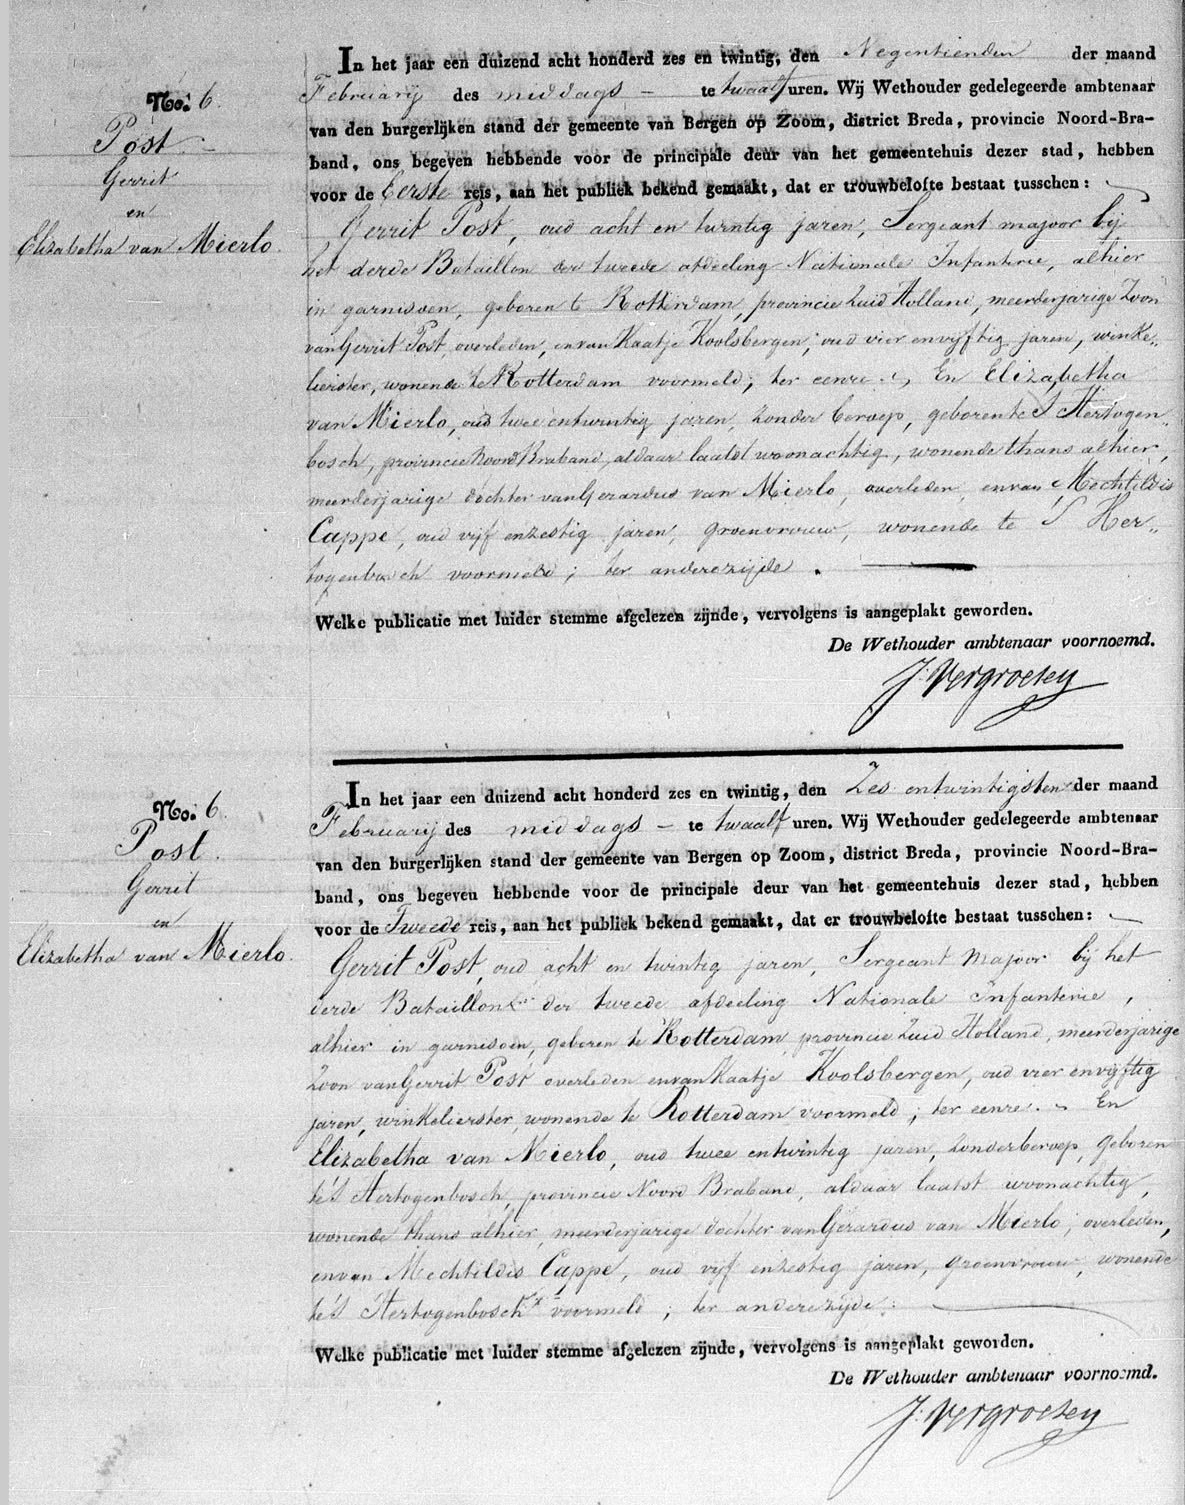 No. 6.
Post.
Gerrit
en
Elizabetha van Mierlo.
In het jaar een duizend acht honderd zes en twintig, den Negentienden der maand
Februarij des middags – te twaalf uren. Wij Wethouder gedelegeerde ambtenaar
van den burgerlijken stand der gemeente van Bergen op Zoom, district Breda, provincie Noord-Bra-
band, ons begeven hebbende voor de principale deur van het gemeentehuis dezer stad, hebben
voor de Eerste reis, aan het publiek bekend gemaakt, dat er trouwbelofte bestaat tusschen:
Gerrit Post, oud acht en twintig jaren, Sergeant majoor bij
het derde Bataillon der tweede afdeeling Nationale Infanterie, alhier
in garnisoen, geboren te Rotterdam, provincie Zuid Holland, meerderjarige Zoon
van Gerrit Post, overleden, en van Kaatje Koolsbergen, oud vier en vijftig jaren, winke„
lierster, wonende te Rotterdam voormeld; ter eenre. En Elizabetha
van Mierlo, oud twee en twintig jaren, zonder beroep, geboren te S Hertogen„
bosch, provincie Noord Braband, aldaar laatst woonachtig, wonende thans alhier,
meerderjarige dochter van Gerardus van Mierlo, overleden, en van Mechtildis
Cappe, oud vijf en zestig jaren, groenvrouw, wonende te S Her„
togenbosch voormeld; ter anderezijde.
Welke publicatie met luider stemme afgelezen zijnde, vervolgens is aangeplakt geworden.
De Wethouder ambtenaar voornoemd.
J. Vergroesen
No. 6.
Post.
Gerrit
en
Elizabetha van Mierlo.
In het jaar een duizend acht honderd zes en twintig, den Zes en twintigsten der maand
Februarij des middags – te twaalf uren. Wij Wethouder gedelegeerde ambtenaar
van den burgerlijken stand der gemeente van Bergen op Zoom, district Breda, provincie Noord-Bra-
band, ons begeven hebbende voor de principale deur van het gemeentehuis dezer stad, hebben
voor de Tweede reis, aan het publiek bekend gemaakt, dat er trouwbelofte bestaat tusschen:
Gerrit Post, oud acht en twintig jaren, Sergeant Majoor bij het
derde Bataillon der tweede afdeeling Nationale Infanterie,
alhier in garnisoen, geboren te Rotterdam, provincie Zuid Holland, meerderjarige
Zoon van Gerrit Post overleden en van Kaatje Koolsbergen, oud vier en vijftig
jaren, winkelierster, wonende te Rotterdam voormeld; ter eenre. En
Elizabetha van Mierlo, oud twee en twintig jaren, zonder beroep, geboren
te S Hertogenbosch, provincie Noord Braband, aldaar laatst woonachtig,
wonende thans alhier, meerderjarige dochter van Gerardus van Mierlo, overleden,
en van Mechtildis Cappe, oud vijf en zestig jaren, groenvrouw, wonende
te S Hertogenbosch voormeld; ter anderezijde.
Welke publicatie met luider stemme afgelezen zijnde, vervolgens is aangeplakt geworden.
De Wethouder ambtenaar voornoemd.
J. Vergroesen